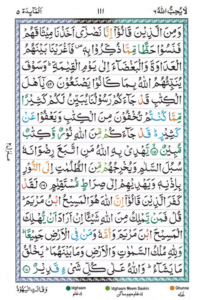 لَا يُحِبُّ اللّٰهُ ٦ ١١١ اَلْمَآئِدَة ٥
وَمِنَ الَّذِيْنَ قَالُوْٓا اِنَّا نَصٰرٰٓى اَخَذْنَا مِيْثَاقَهُمْ
فَنَسُوْا حَظًّا مِّمَّا ذُكِّرُوْا بِهٖ فَاَغْرَيْنَا بَيْنَهُمُ
الْعَدَاوَةَ وَالْبَغْضَآءَ اِلٰى يَوْمِ الْقِيٰمَةِ وَسَوْفَ
يُنَبِّئُهُمُ اللّٰهُ بِمَا كَانُوْا يَصْنَعُوْنَ يٰٓاَهْلَ
الْكِتٰبِ قَدْ جَآءَكُمْ رَسُوْلُنَا يُبَيِّنُ لَكُمْ كَثِيْرًا
مِّمَّا كُنْتُمْ تُخْفُوْنَ مِنَ الْكِتٰبِ وَيَعْفُوْا عَنْ
كَثِيْرٍ قَدْ جَآءَكُمْ مِّنَ اللّٰهِ نُوْرٌ وَّكِتٰبٌ
مُّبِيْنٌ يَّهْدِيْ بِهِ اللّٰهُ مَنِ اتَّبَعَ رِضْوَانَهٗ
سُبُلَ السَّلٰمِ وَيُخْرِجُهُمْ مِّنَ الظُّلُمٰتِ اِلَى النُّوْرِ
بِاِذْنِهٖ وَيَهْدِيْهِمْ اِلٰى صِرَاطٍ مُّسْتَقِيْمٍ لَقَدْ
كَفَرَ الَّذِيْنَ قَالُوْٓا اِنَّ اللّٰهَ هُوَ الْمَسِيْحُ ابْنُ مَرْيَمَ
قُلْ فَمَنْ يَّمْلِكُ مِنَ اللّٰهِ شَيْـًٔا اِنْ اَرَادَ اَنْ يُّهْلِكَ
الْمَسِيْحَ ابْنَ مَرْيَمَ وَاُمَّهٗ وَمَنْ فِي الْاَرْضِ جَمِيْعًا
وَلِلّٰهِ مُلْكُ السَّمٰوٰتِ وَالْاَرْضِ وَمَا بَيْنَهُمَا يَخْلُقُ
مَا يَشَآءُ وَاللّٰهُ عَلٰى كُلِّ شَيْءٍ قَدِيْرٌ
وَقَالَتِ الْيَهُوْدُ Idghaam Idghaam Meem Saakin Ghunna